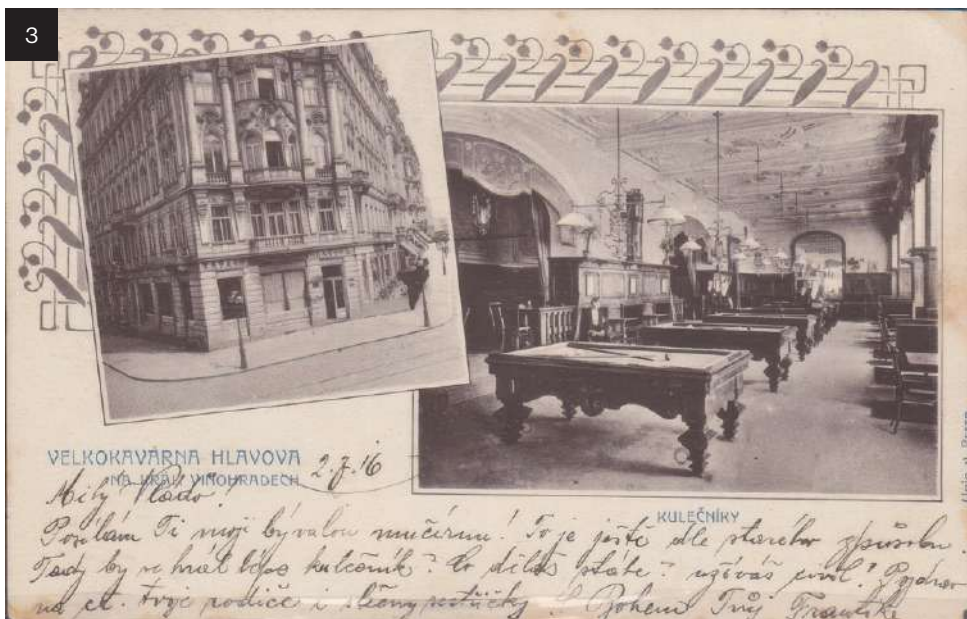 3
VELKOKAVÁRNA HLAVOVA
NA KRÁL. VINOHRADECH
2.7.16
KULEČNÍKY
Milý Vládo!
Posílám Ti moji bývalou mučírnu! To je ještě dle starého způsobu.
Tady by se hrál lépe kulečník? Co děláš stále? užíváš Pozdrav
na ct. tvoje rodiče i slečny S Bohem Tvůj